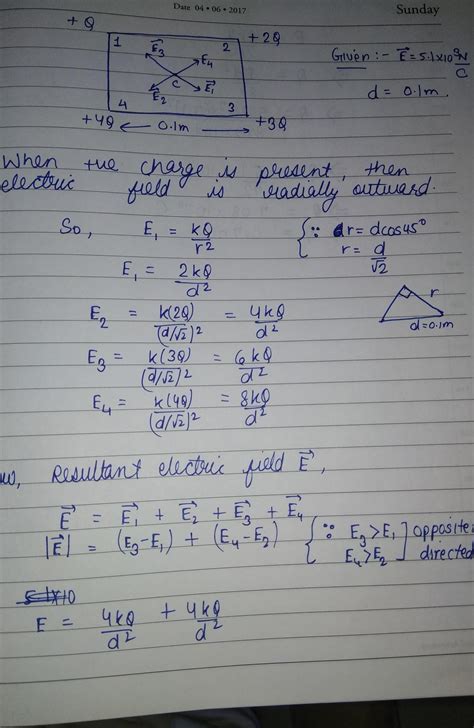 Date 04 • 06 • 2017 Sunday
+Q 1 E⃗₃ E⃗₄ 2 +2Q
Given :- E⃗ = 5.1×10³ N/C
C
4 E⃗₂ E⃗₁ 3
d = 0.1m.
+4Q ← 0.1m → +3Q
When +ve charge is present, then
electric field is radially outward.
So, E₁ = kQ/r² { ∵ r = dcos45°
r = d/√2
E₁ = 2kQ/d²
E₂ = k(2Q)/(d/√2)² = 4kQ/d²
r
d=0.1m
E₃ = k(3Q)/(d/√2)² = 6kQ/d²
E₄ = k(4Q)/(d/√2)² = 8kQ/d²
Resultant electric field E⃗,
E⃗ = E⃗₁ + E⃗₂ + E⃗₃ + E⃗₄
|E⃗| = (E₃-E₁) + (E₄-E₂) { ∵ E₃>E₁ ] opposite
E₄>E₂ directed
5.1×10
E = 4kQ/d² + 4kQ/d²